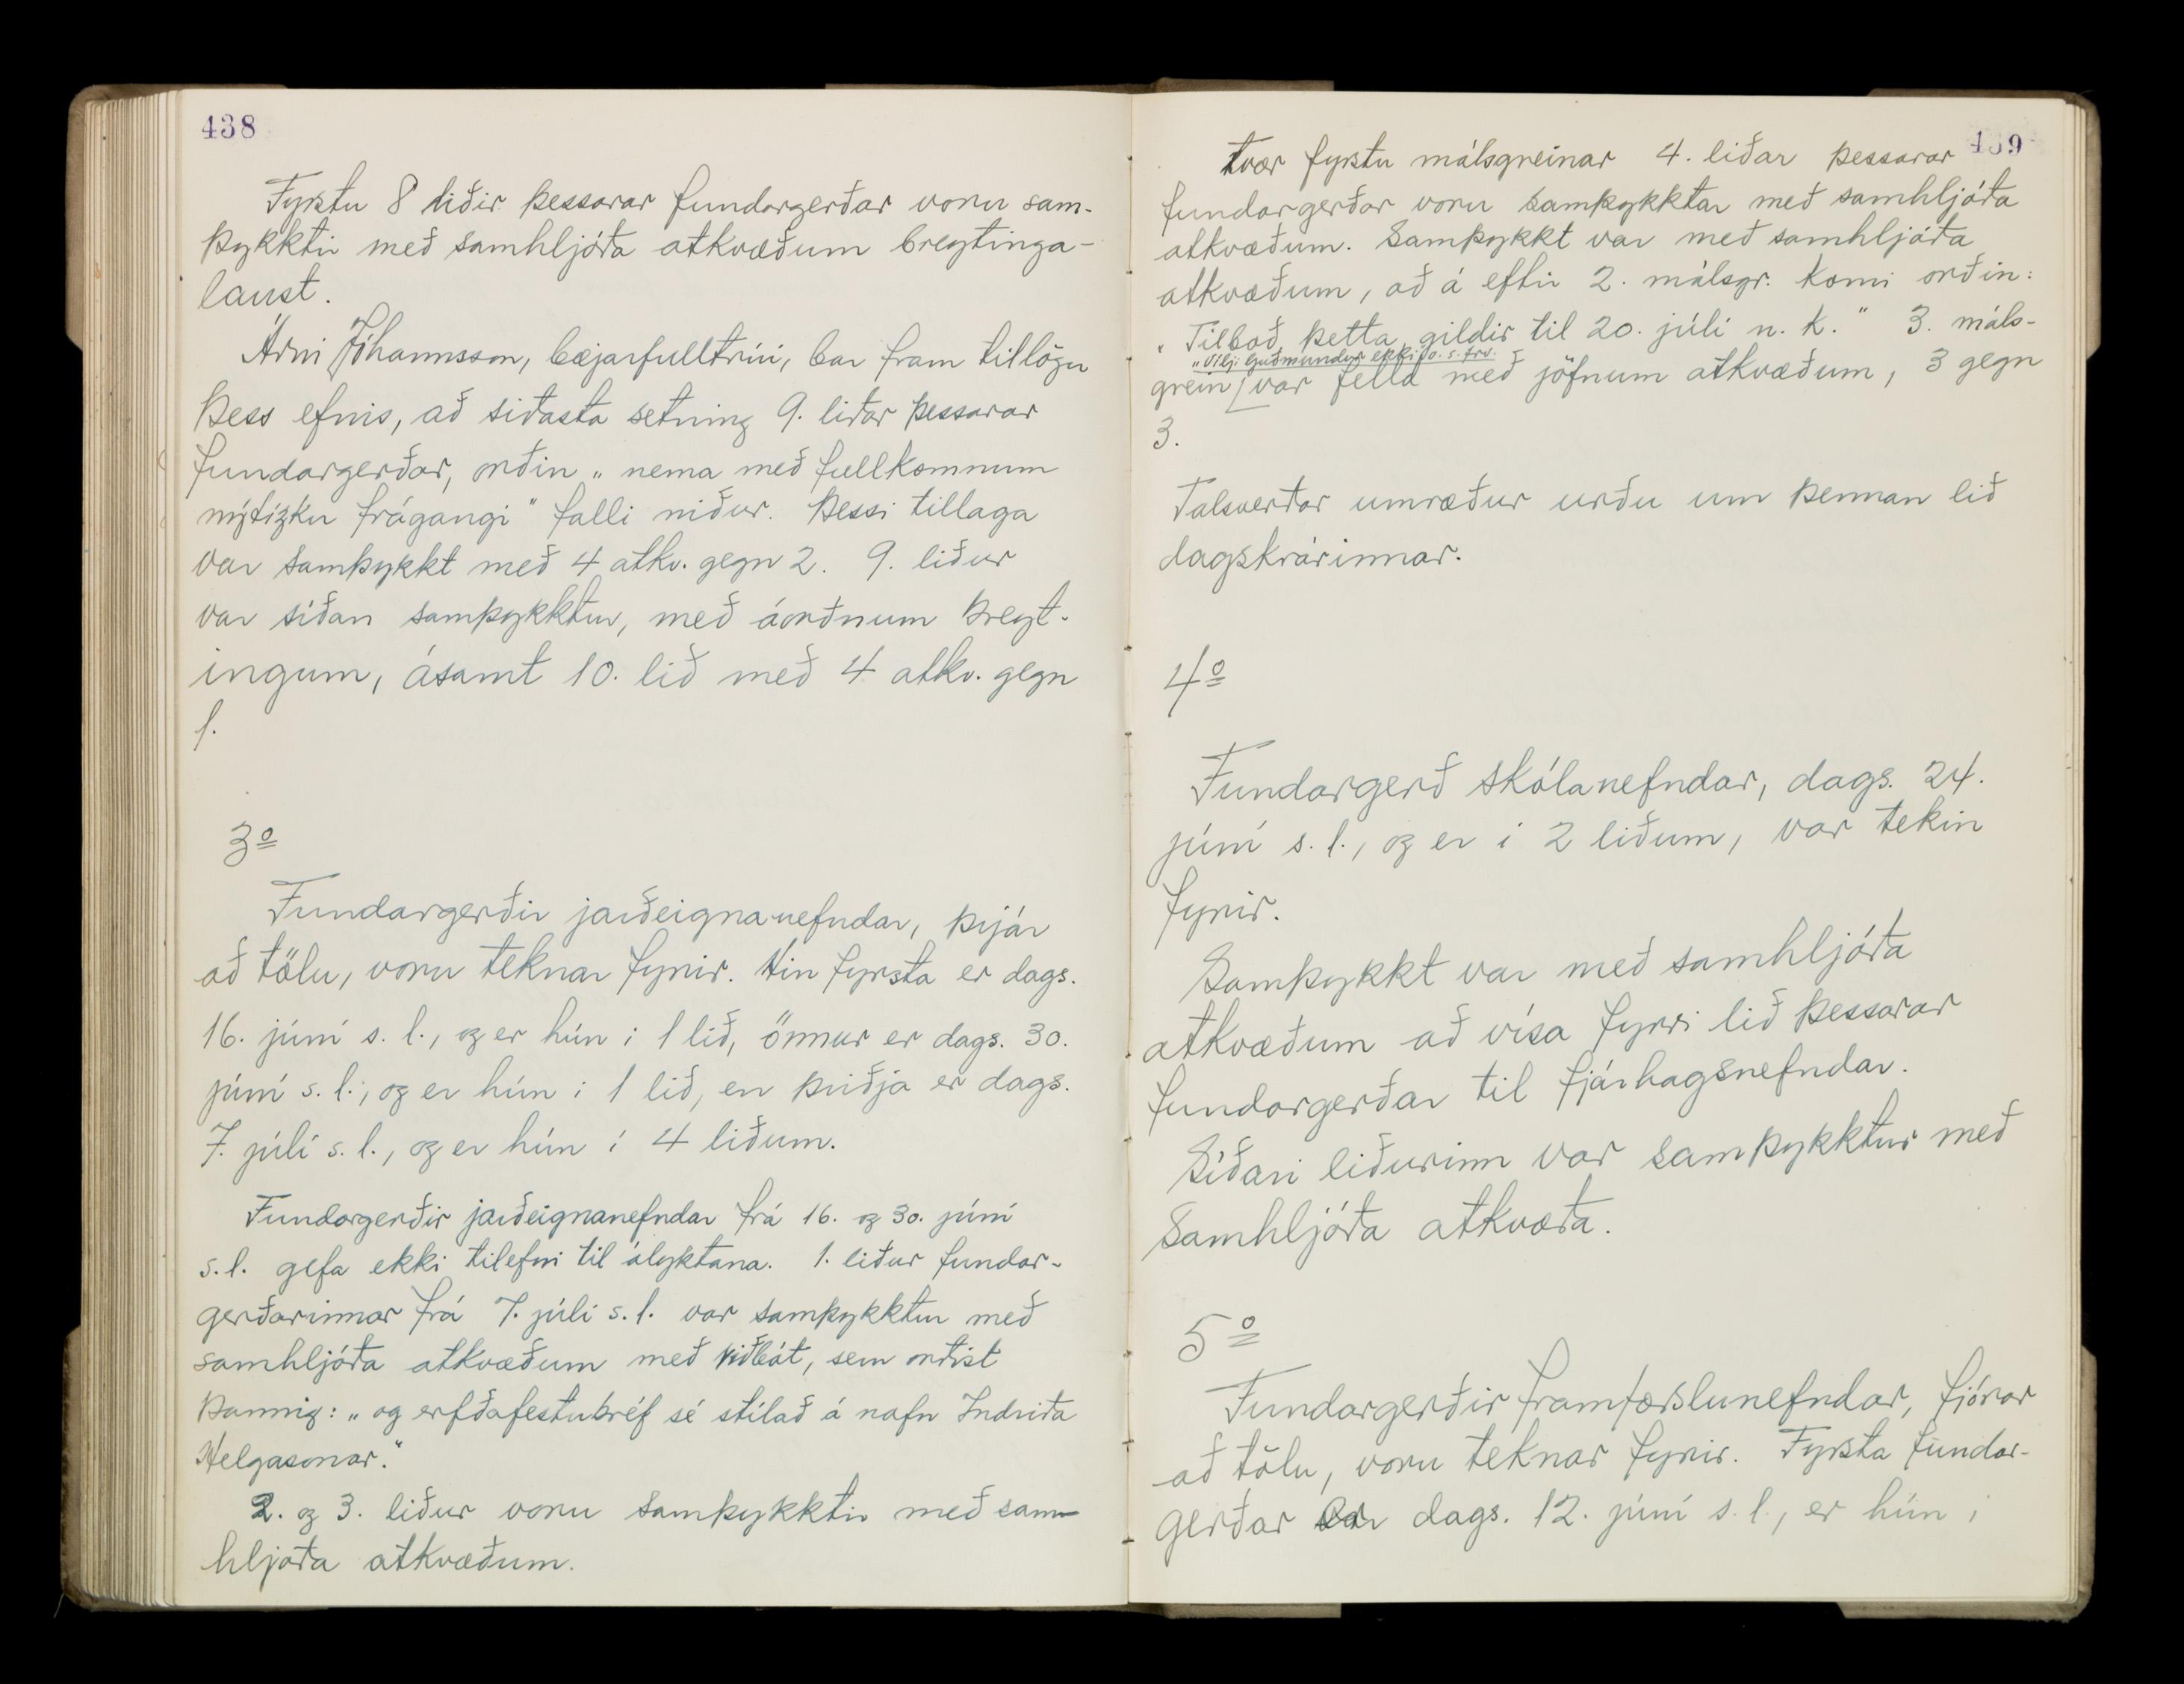 438
Fyrstu 8 liðir þessarar fundargerðar voru sam-
þykktir með samhljóða atkvæðum breytinga-
laust.
Árni Jóhannsson, bæjarfulltrúi, bar fram tillögu
þess efnis, að síðasta setning 9. liðar þessarar
fundargerðar, orðin „nema með fullkomnum
nýtízku frágangi" falli niður. Þessi tillaga
var samþykkt með 4 atkv. gegn 2. 9. liður
var síðan samþykktur, með áorðnum breyt-
ingum, ásamt 10. lið með 4 atkv. gegn
1.
3º
Fundargerðir jarðeignanefndar, þrjár
að tölu, voru teknar fyrir. Hin fyrsta er dags.
16. júní s.l., og er hún í 1 lið, önnur er dags. 30.
júní s.l., og er hún í 1 lið, en þriðja er dags.
7. júlí s.l., og er hún í 4 liðum.
Fundargerðir jarðeignanefndar frá 16. og 30. júní
s.l. gefa ekki tilefni til ályktana. 1. liður fundar-
gerðarinnar frá 7. júlí s.l. var samþykktur með
samhljóða atkvæðum með viðbót, sem orðist
þannig: „og erfðafestubréf sé stílað á nafn Indriða
Helgasonar."
2. og 3. liður voru samþykktir með sam-
hljóða atkvæðum.
439
Tvær fyrstu málsgreinar 4. liðar þessarar
fundargerðar voru samþykktar með samhljóða
atkvæðum. Samþykkt var með samhljóða
atkvæðum, að á eftir 2. málsgr. komi orðin:
„Tilboð þetta gildir til 20. júlí n.k." 3. máls-
„Vilji Guðmundur ekki o.s.frv.
grein var felld með jöfnum atkvæðum, 3 gegn
3.
Talsverðar umræður urðu um þennan lið
dagskrárinnar.
4º
Fundargerð skólanefndar, dags. 24.
júní s.l., og er í 2 liðum, var tekin
fyrir.
Samþykkt var með samhljóða
atkvæðum að vísa fyrri lið þessarar
fundargerðar til fjárhagsnefndar.
Síðari liðurinn var samþykktur með
samhljóða atkvæða.
5º
Fundargerðir framfærslunefndar, fjórar
að tölu, voru teknar fyrir. Fyrsta fundar-
gerðar er dags. 12. júní s.l., er hún í